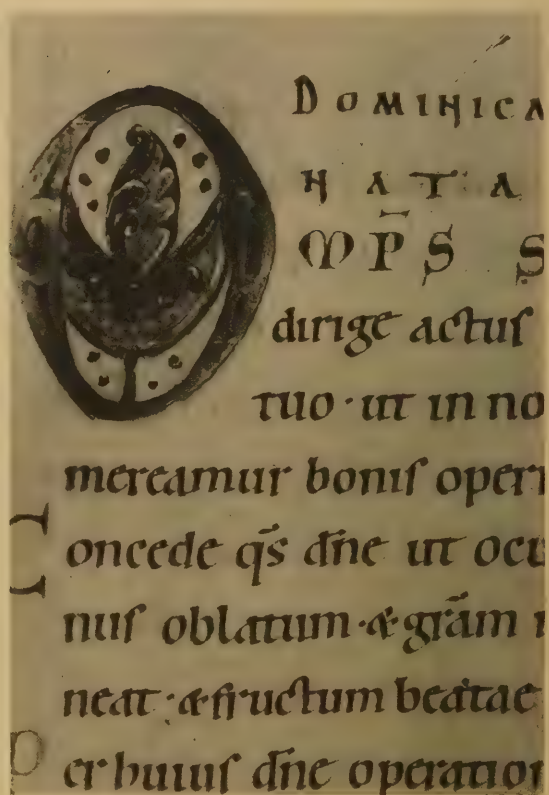 DOMINICA
NATA
O MP̄S S
dirige actuſ
tuo · ut in no
mereamur boniſ oper
Concede qs̄ dn̄e ut ocu
nuſ oblatum · & grām
neat · & fructum beatae
Per huiuſ dn̄e operation